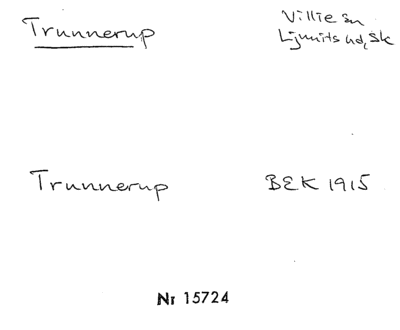 Trunnerup
Villie sn
Ljunits hd, Sk
Trunnerup
BEK 1915
Nr 15724